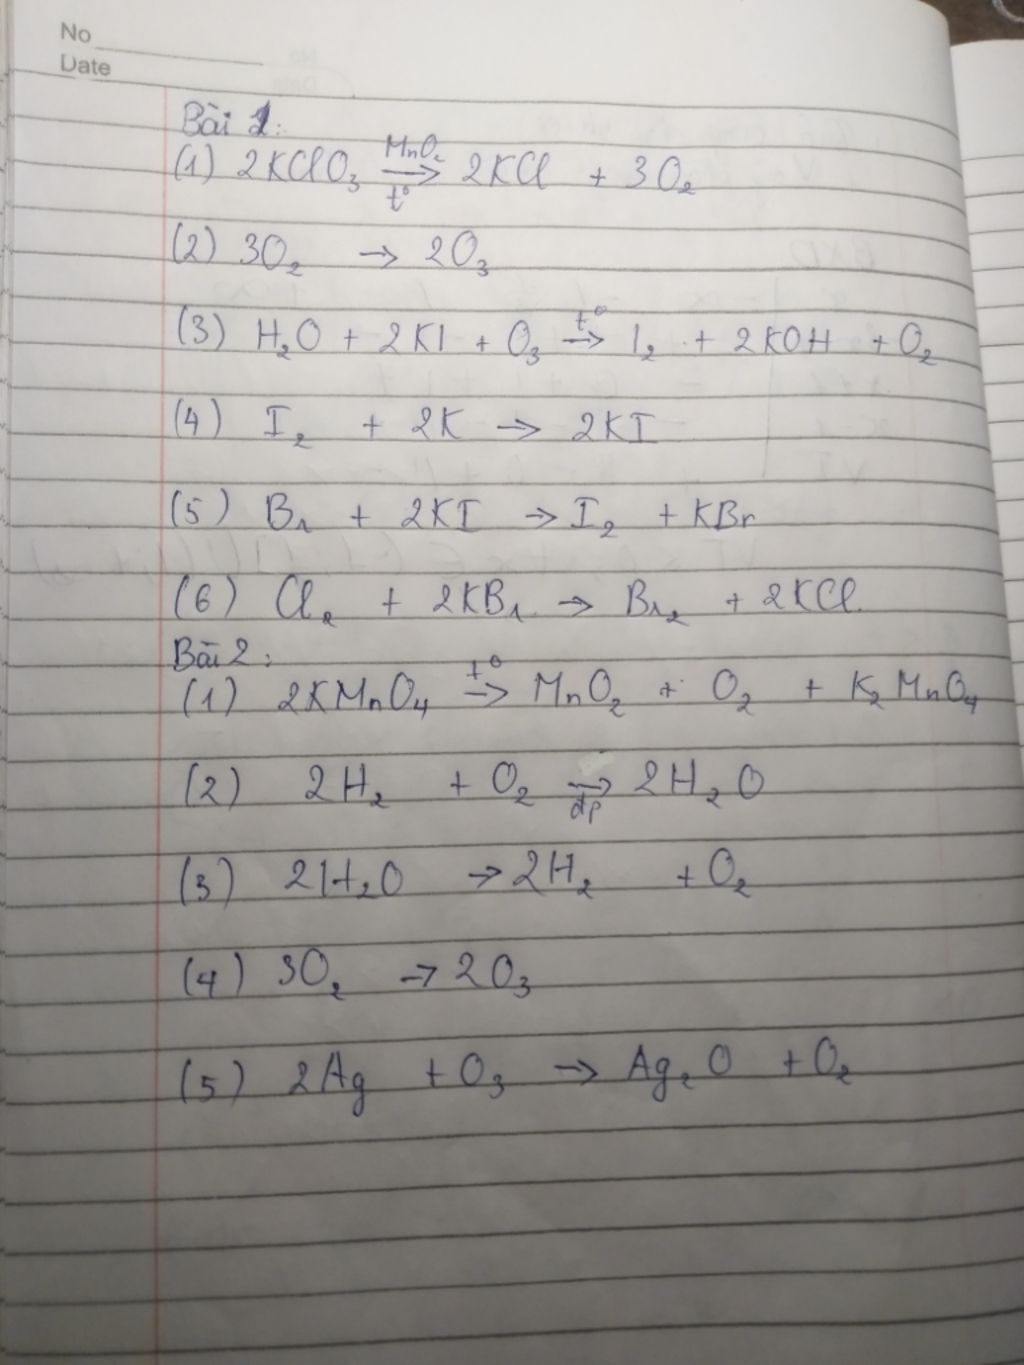 No
Date
Bài 1:
(1) 2KClO₃ MnO₂ → t° 2KCl + 3O₂
(2) 3O₂ → 2O₃
(3) H₂O + 2KI + O₃ t° → I₂ + 2KOH + O₂
(4) I₂ + 2K → 2KI
(5) Br + 2KI → I₂ + KBr
(6) Cl₂ + 2KBr → Br₂ + 2KCl
Bài 2:
(1) 2KMnO₄ t° → MnO₂ + O₂ + K₂MnO₄
(2) 2H₂ + O₂ → đp 2H₂O
(3) 2H₂O → 2H₂ + O₂
(4) 3O₂ → 2O₃
(5) 2Ag + O₃ → Ag₂O + O₂